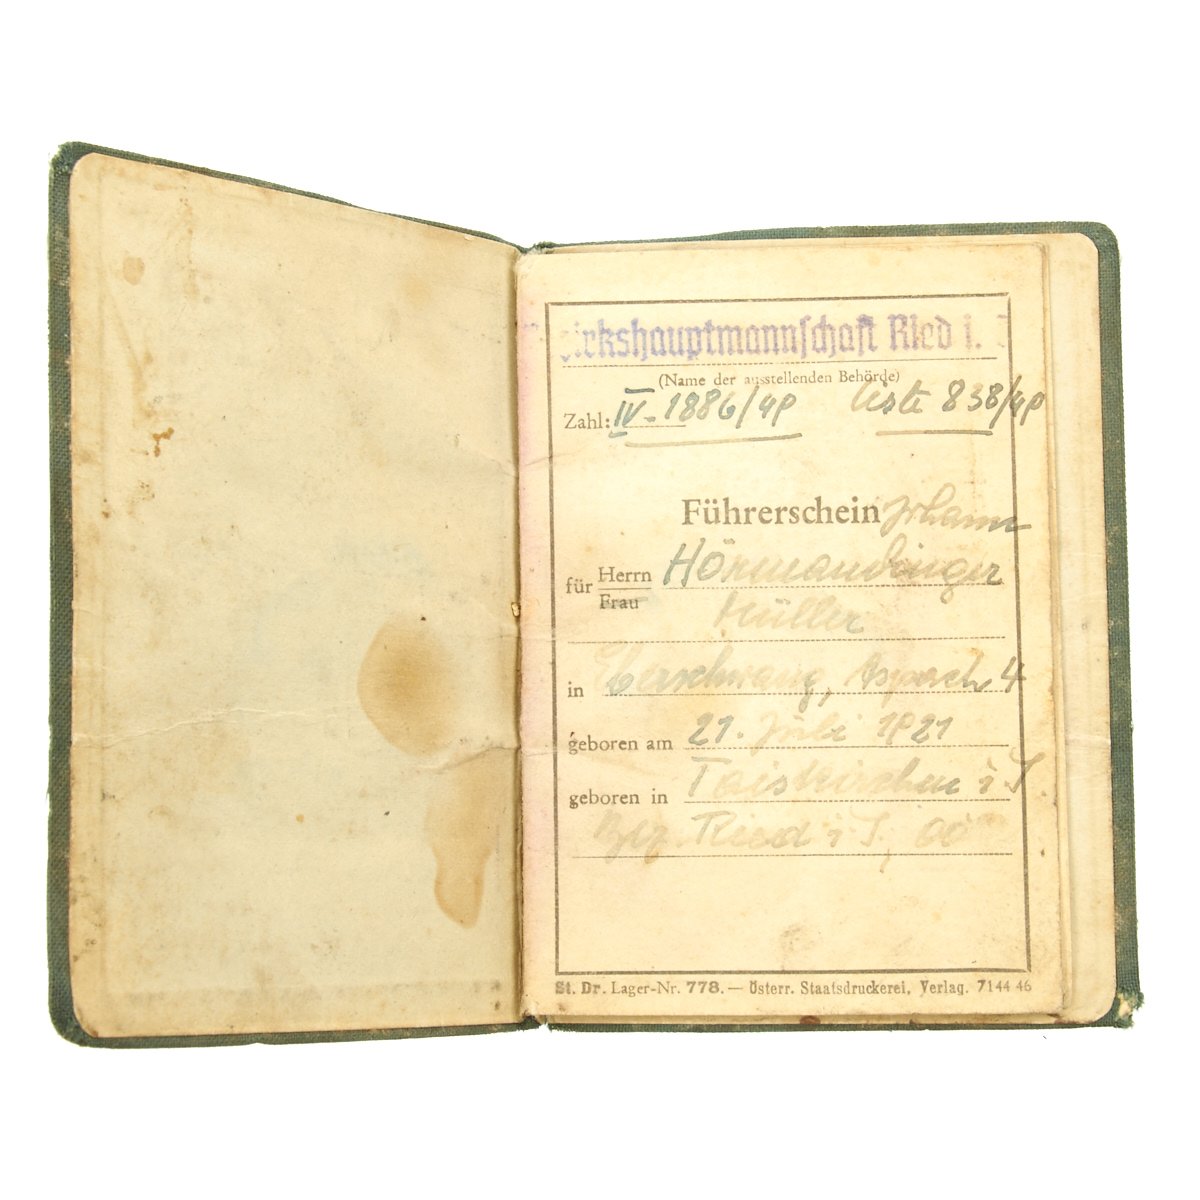 Bezirkshauptmannschaft Ried i.
(Name der ausstellenden Behörde)
Zahl: IV-1886/49 Liste 838/49
Führerschein Johann
für Herrn Hörmandinger
Frau
Müller
in Eberschwang, Aspach 4
geboren am 21. Juli 1921
geboren in Taiskirchen i I.
Bez. Ried i I, OÖ
St. Dr. Lager-Nr. 778. — Österr. Staatsdruckerei, Verlag. 7144 46